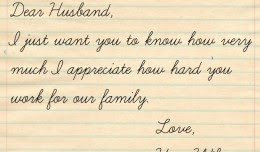 Dear Husband,
I just want you to know how very
much I appreciate how hard you
work for our family.
Love,